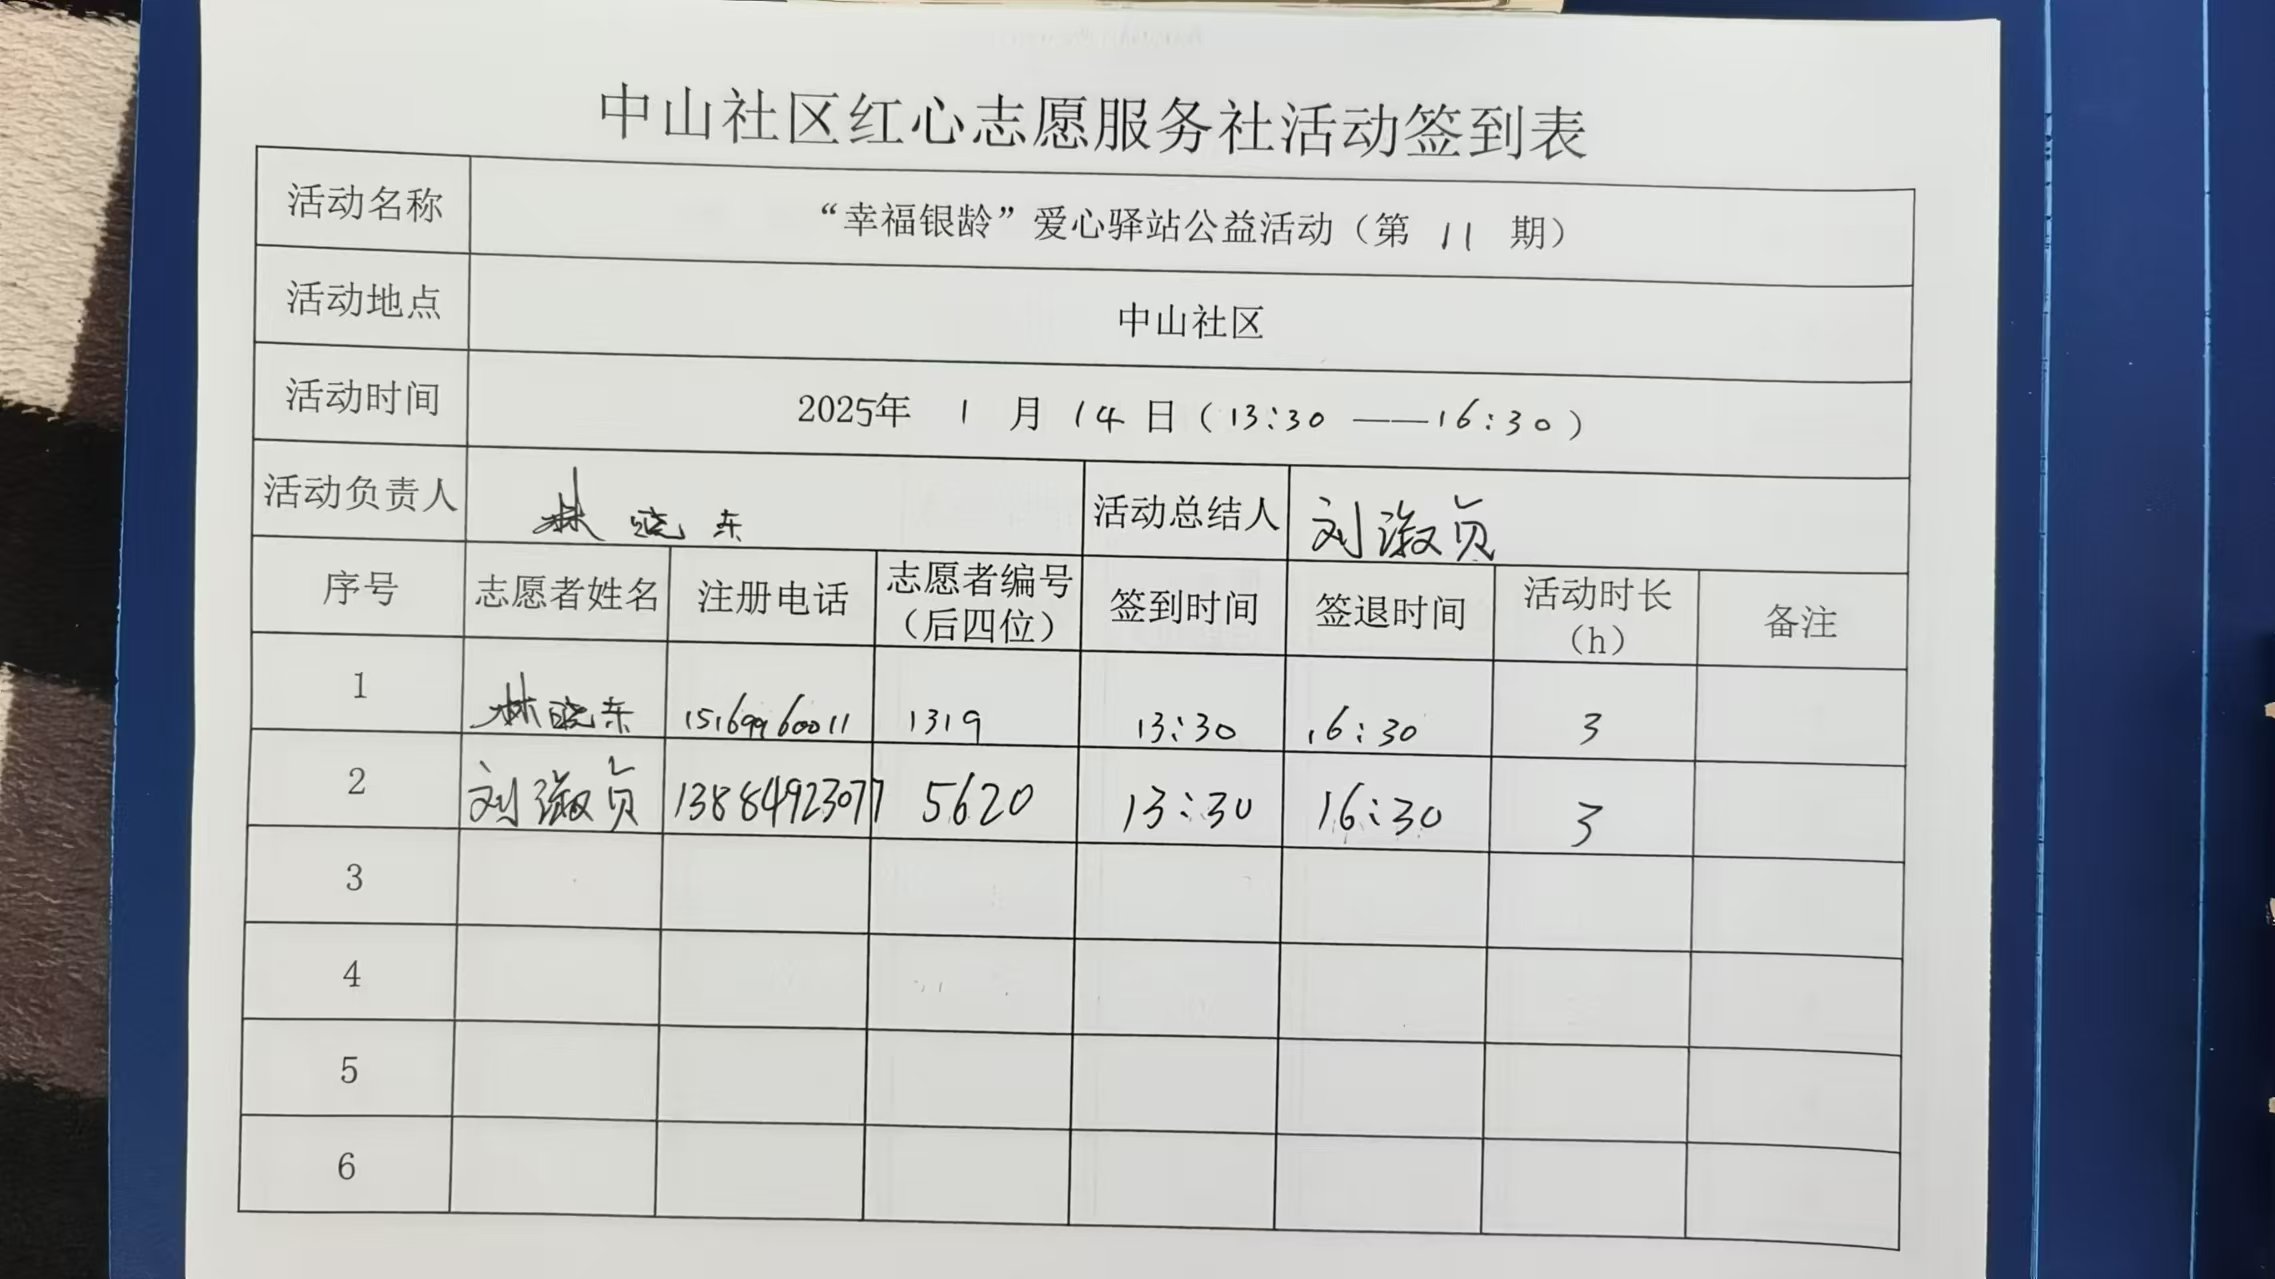 中山社区红心志愿服务社活动签到表
活动名称 “幸福银龄”爱心驿站公益活动（第 11 期）
活动地点 中山社区
活动时间 2025年 1 月 14 日（13:30 ——16:30）
活动负责人 林晓东 活动总结人 刘淑贞
序号 志愿者姓名 注册电话 志愿者编号（后四位） 签到时间 签退时间 活动时长（h） 备注
1 林晓东 15169960011 1319 13:30 16:30 3
2 刘淑贞 13884923077 5620 13:30 16:30 3
3
4
5
6